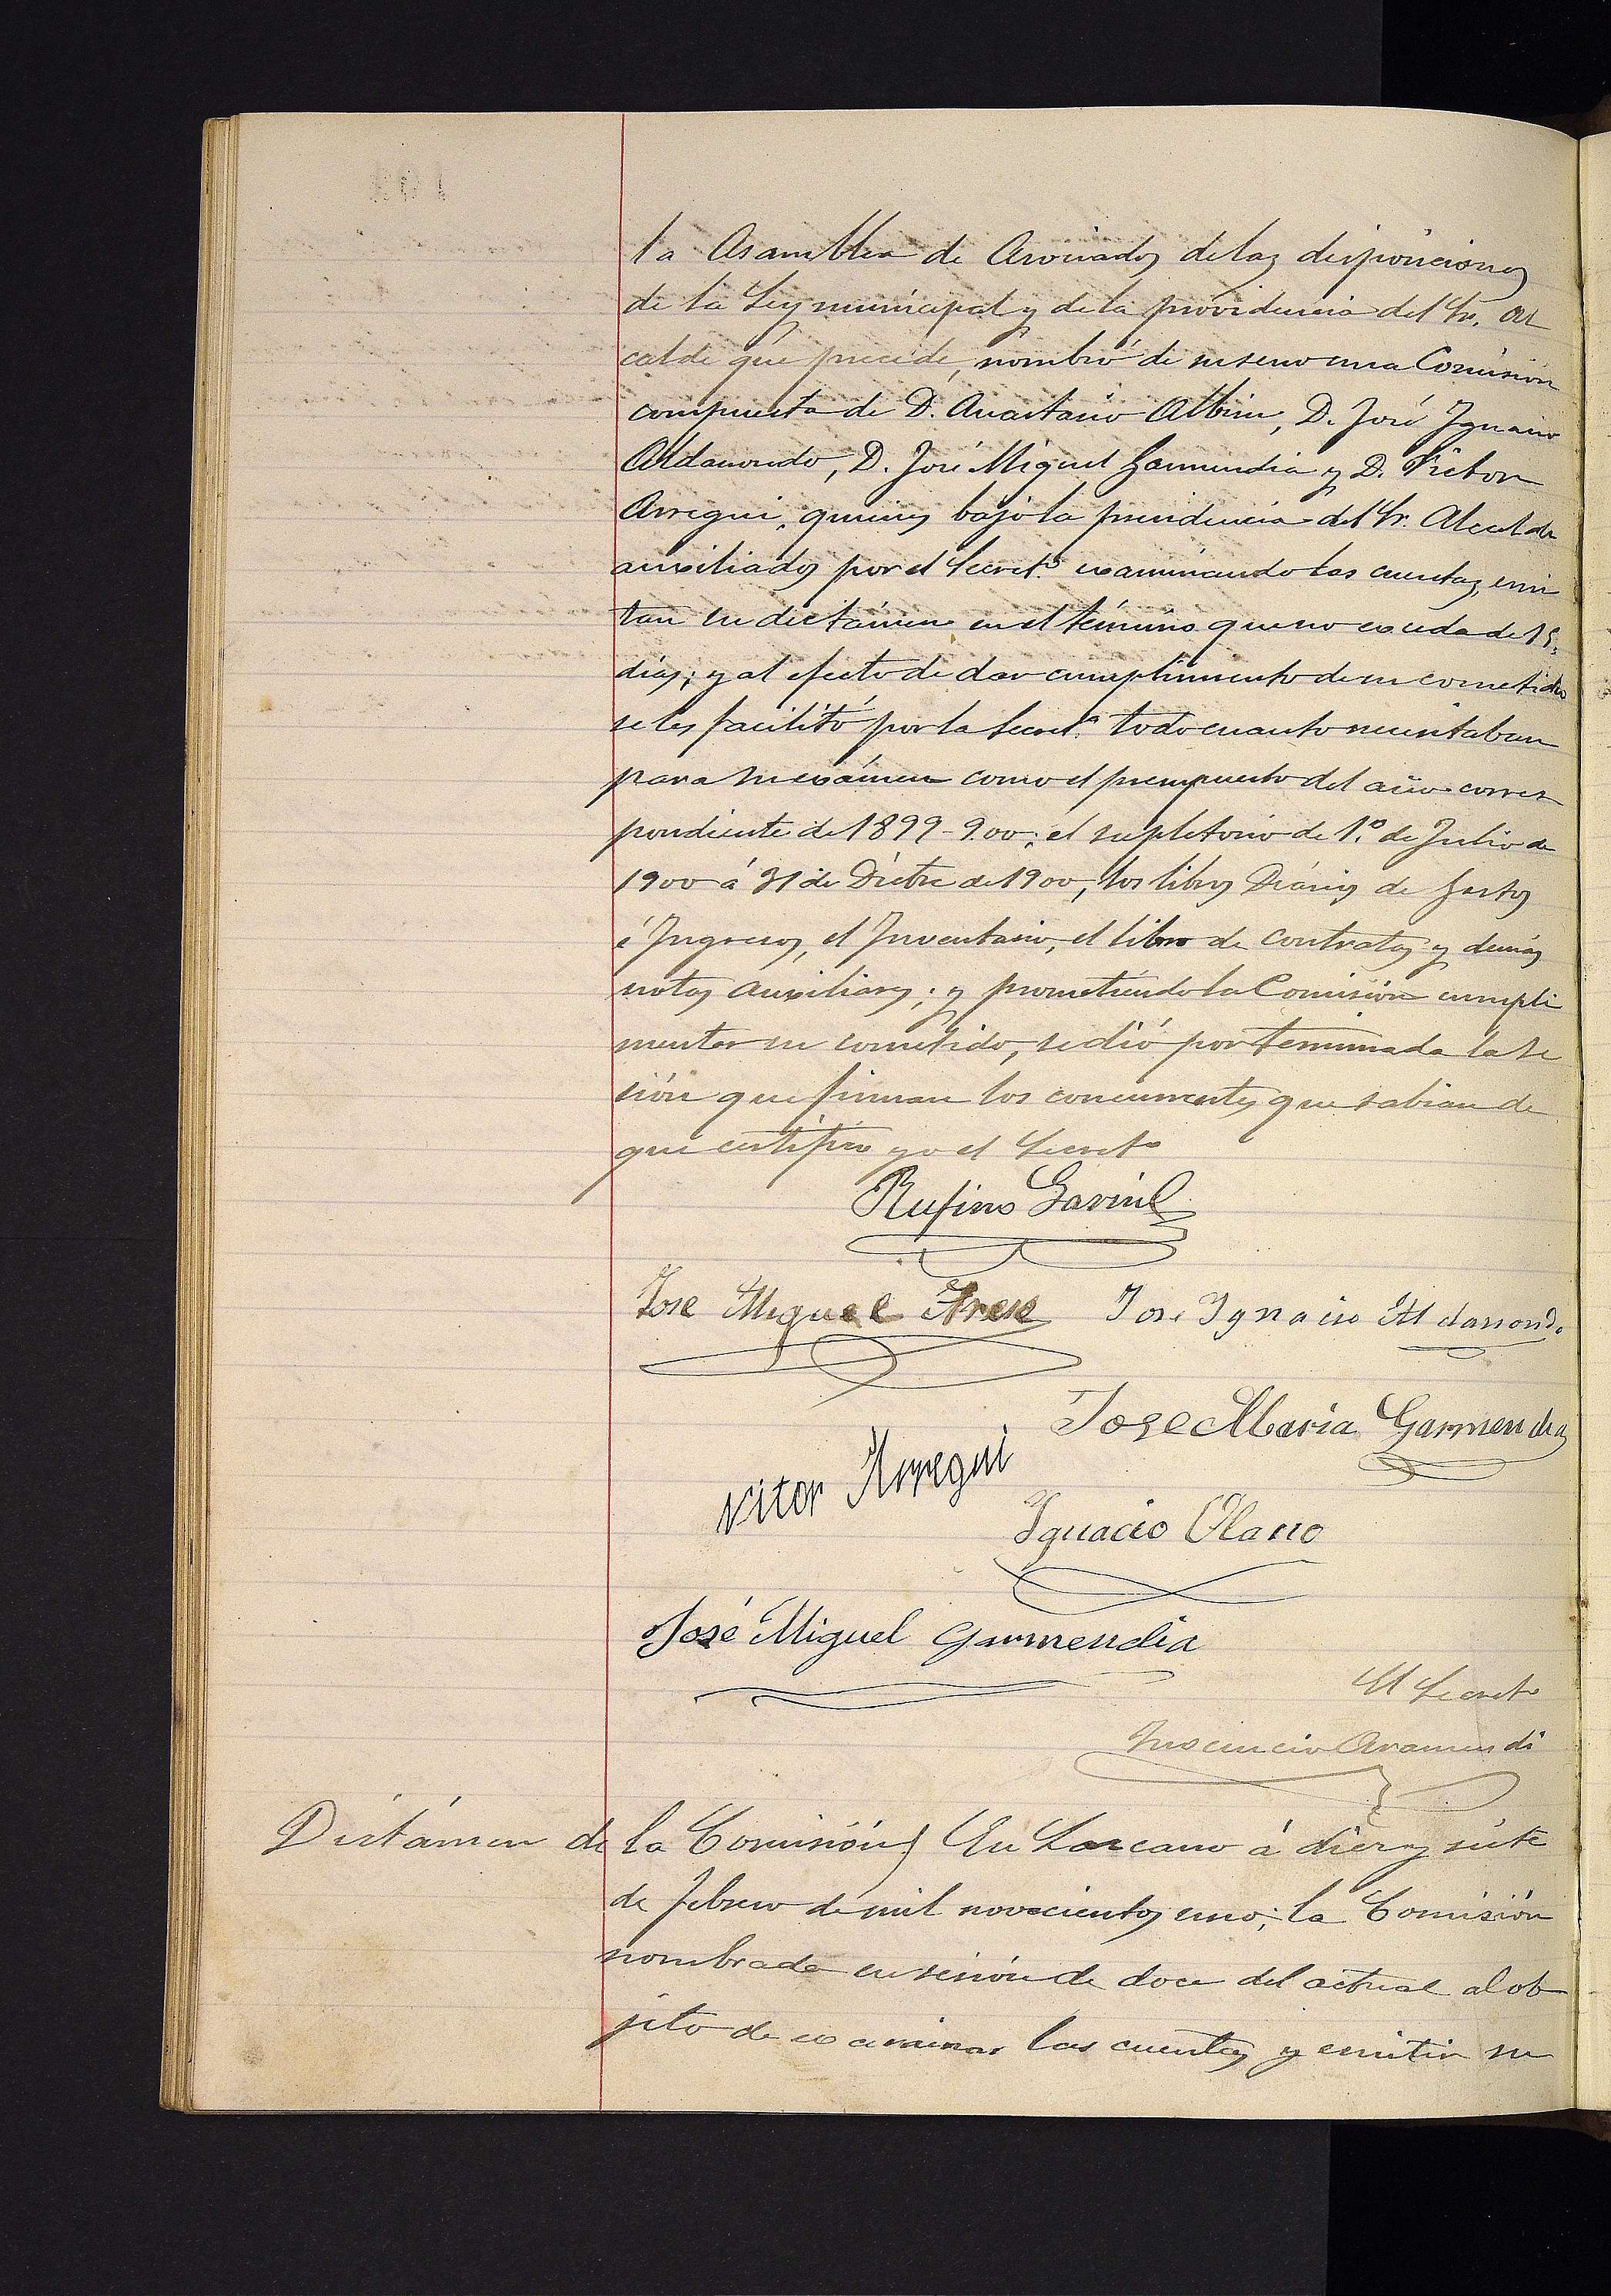 la Asamblea de Asociados de las disposiciones
de la Ley municipal y de la providencia del Sr. Al
calde que precede, nombró de su seno una Comisión
compuesta de D. Anastasio Albisu, D. José Ignacio
Aldasoro, D. José Miguel Garmendia y D. Victor
Arregui, quienes bajo la presidencia del Sr. Alcalde
auxiliados por el Secret.º examinando las cuentas, emi
tan su dictámen en el término que no exceda de 15
días; y al efecto de dar cumplimiento de su cometido
se les facilitó por la Secret.ª todo cuanto necesitaban
para su exámen como el presupuesto del año corres
pondiente de 1899-900, el supletorio de 1.º de Julio de
1900 á 31 de Dicbre de 1900, los libros Diarios de Gastos
é Ingresos, el Inventario, el libro de contratos y demás
notas auxiliares; y prometiendo la Comisión cumpli
mentar su cometido, se dió por terminada la se
sión que firman los concurrentes que sabian de
que certifico yo el Secret.º
Rufino
Jose Miguel
Jose Ignacio
Jose Maria Garmendia
Vitor Arregui
Ignacio Olano
José Miguel Garmendia
El Secret.º
Inocencio Aramendi
Dictámen de la Comisión) En Lazcano á diez y siete
de febrero de mil novecientos uno; la Comisión
nombrada en sesión de doce del actual al ob
jeto de examinar las cuentas y emitir su